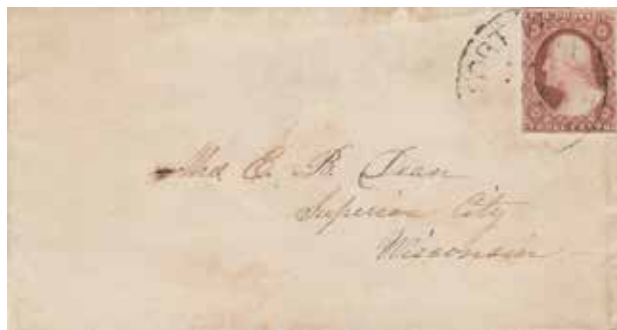 E. R. Dean
Superior City
Wisconsin